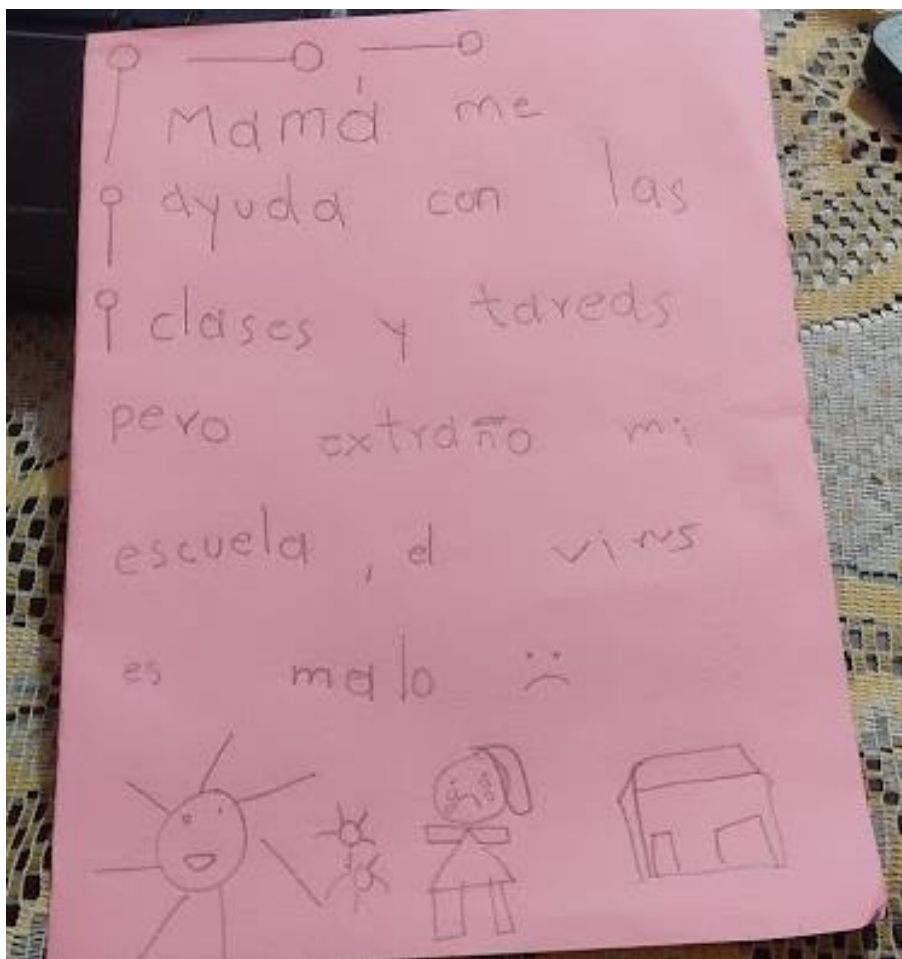 Mamá me
ayuda con las
clases y tareas
pero extraño mi
escuela, el virus
es malo :(